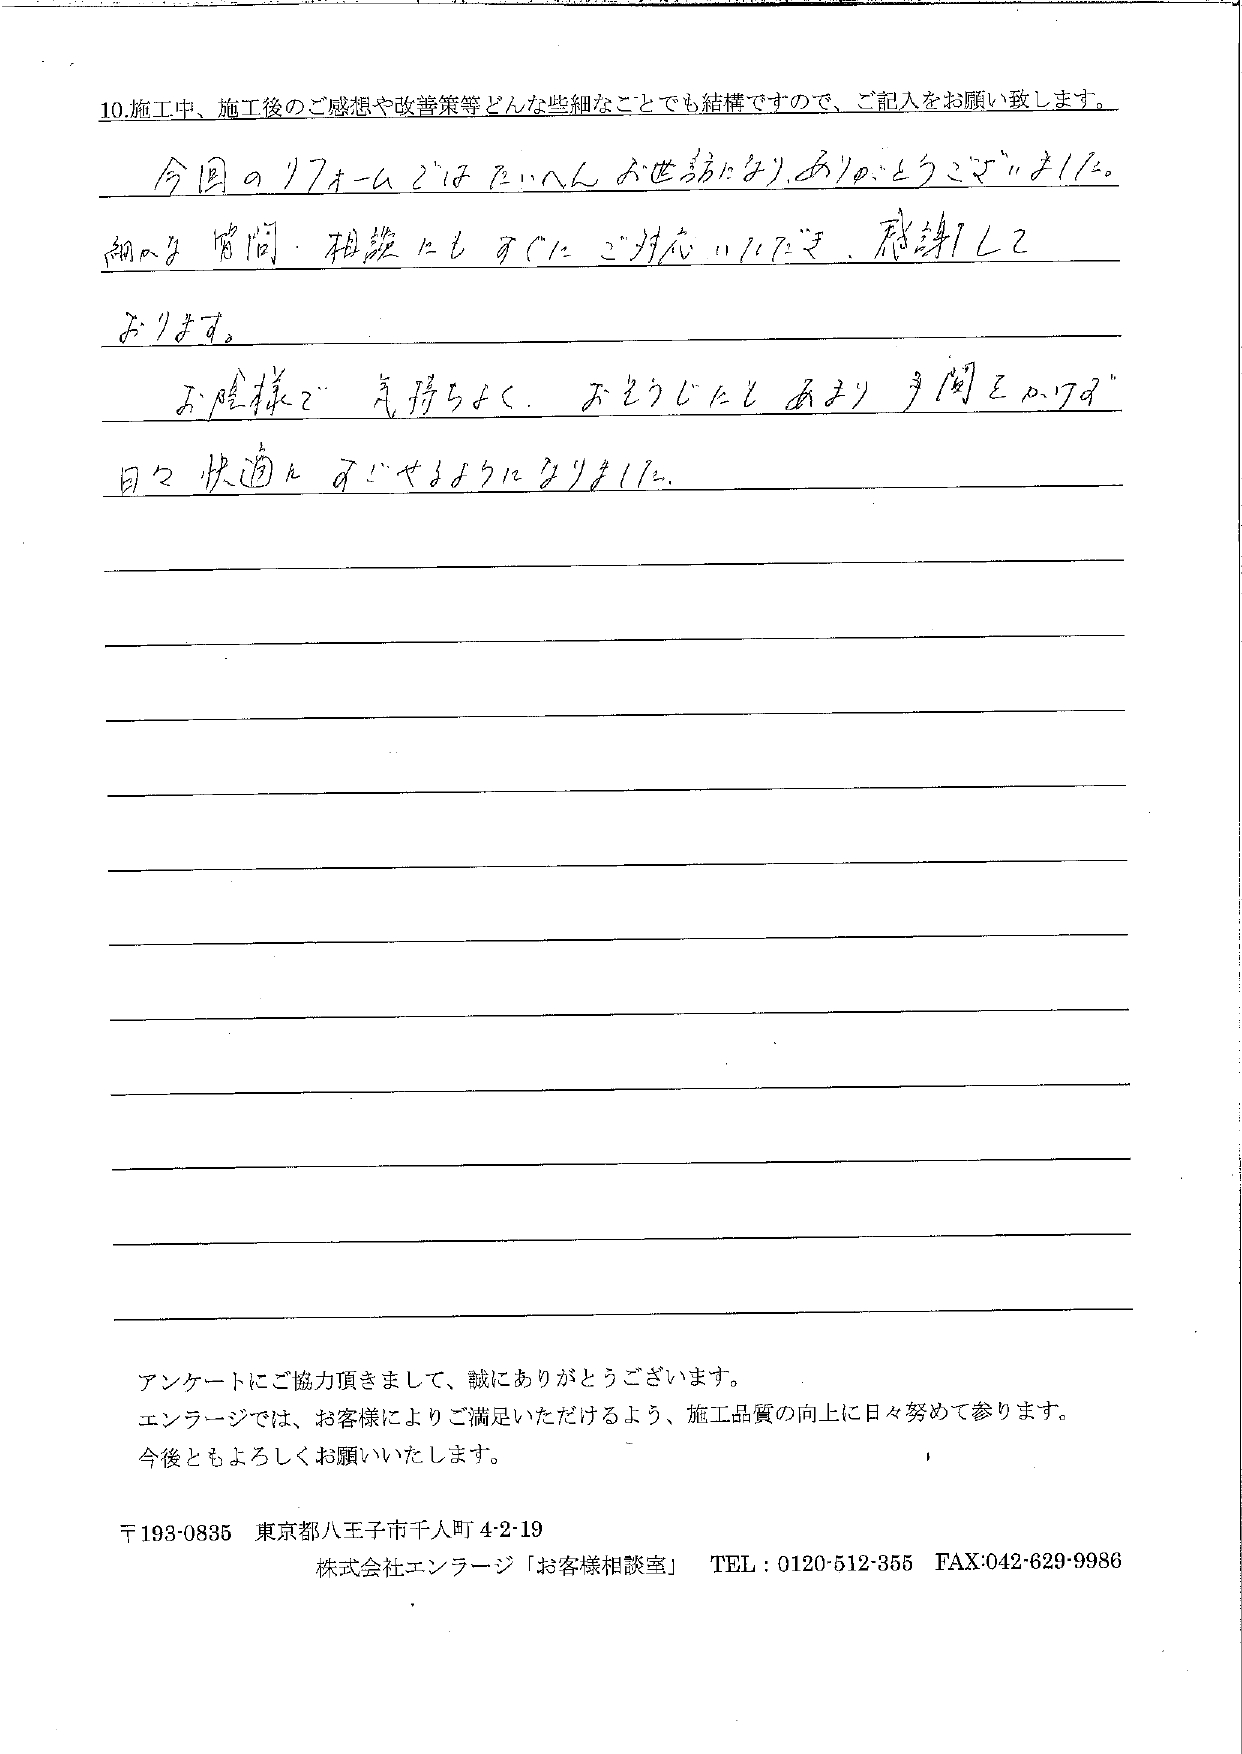 10.施工中、施工後のご感想や改善策等どんな些細なことでも結構ですので、ご記入をお願い致します。
今回のリフォームではたいへんお世話になり、ありがとうございました。
細かな質問・相談にもすぐにご対応いただき、感謝して
おります。
お陰様で気持ちよく、おそうじなどあまり手間をかけず
日々快適にすごせるようになりました。
アンケートにご協力頂きまして、誠にありがとうございます。
エンラージでは、お客様によりご満足いただけるよう、施工品質の向上に日々努めて参ります。
今後ともよろしくお願いいたします。
〒193-0835 東京都八王子市千人町 4-2-19
株式会社エンラージ「お客様相談室」 TEL：0120-512-355 FAX:042-629-9986